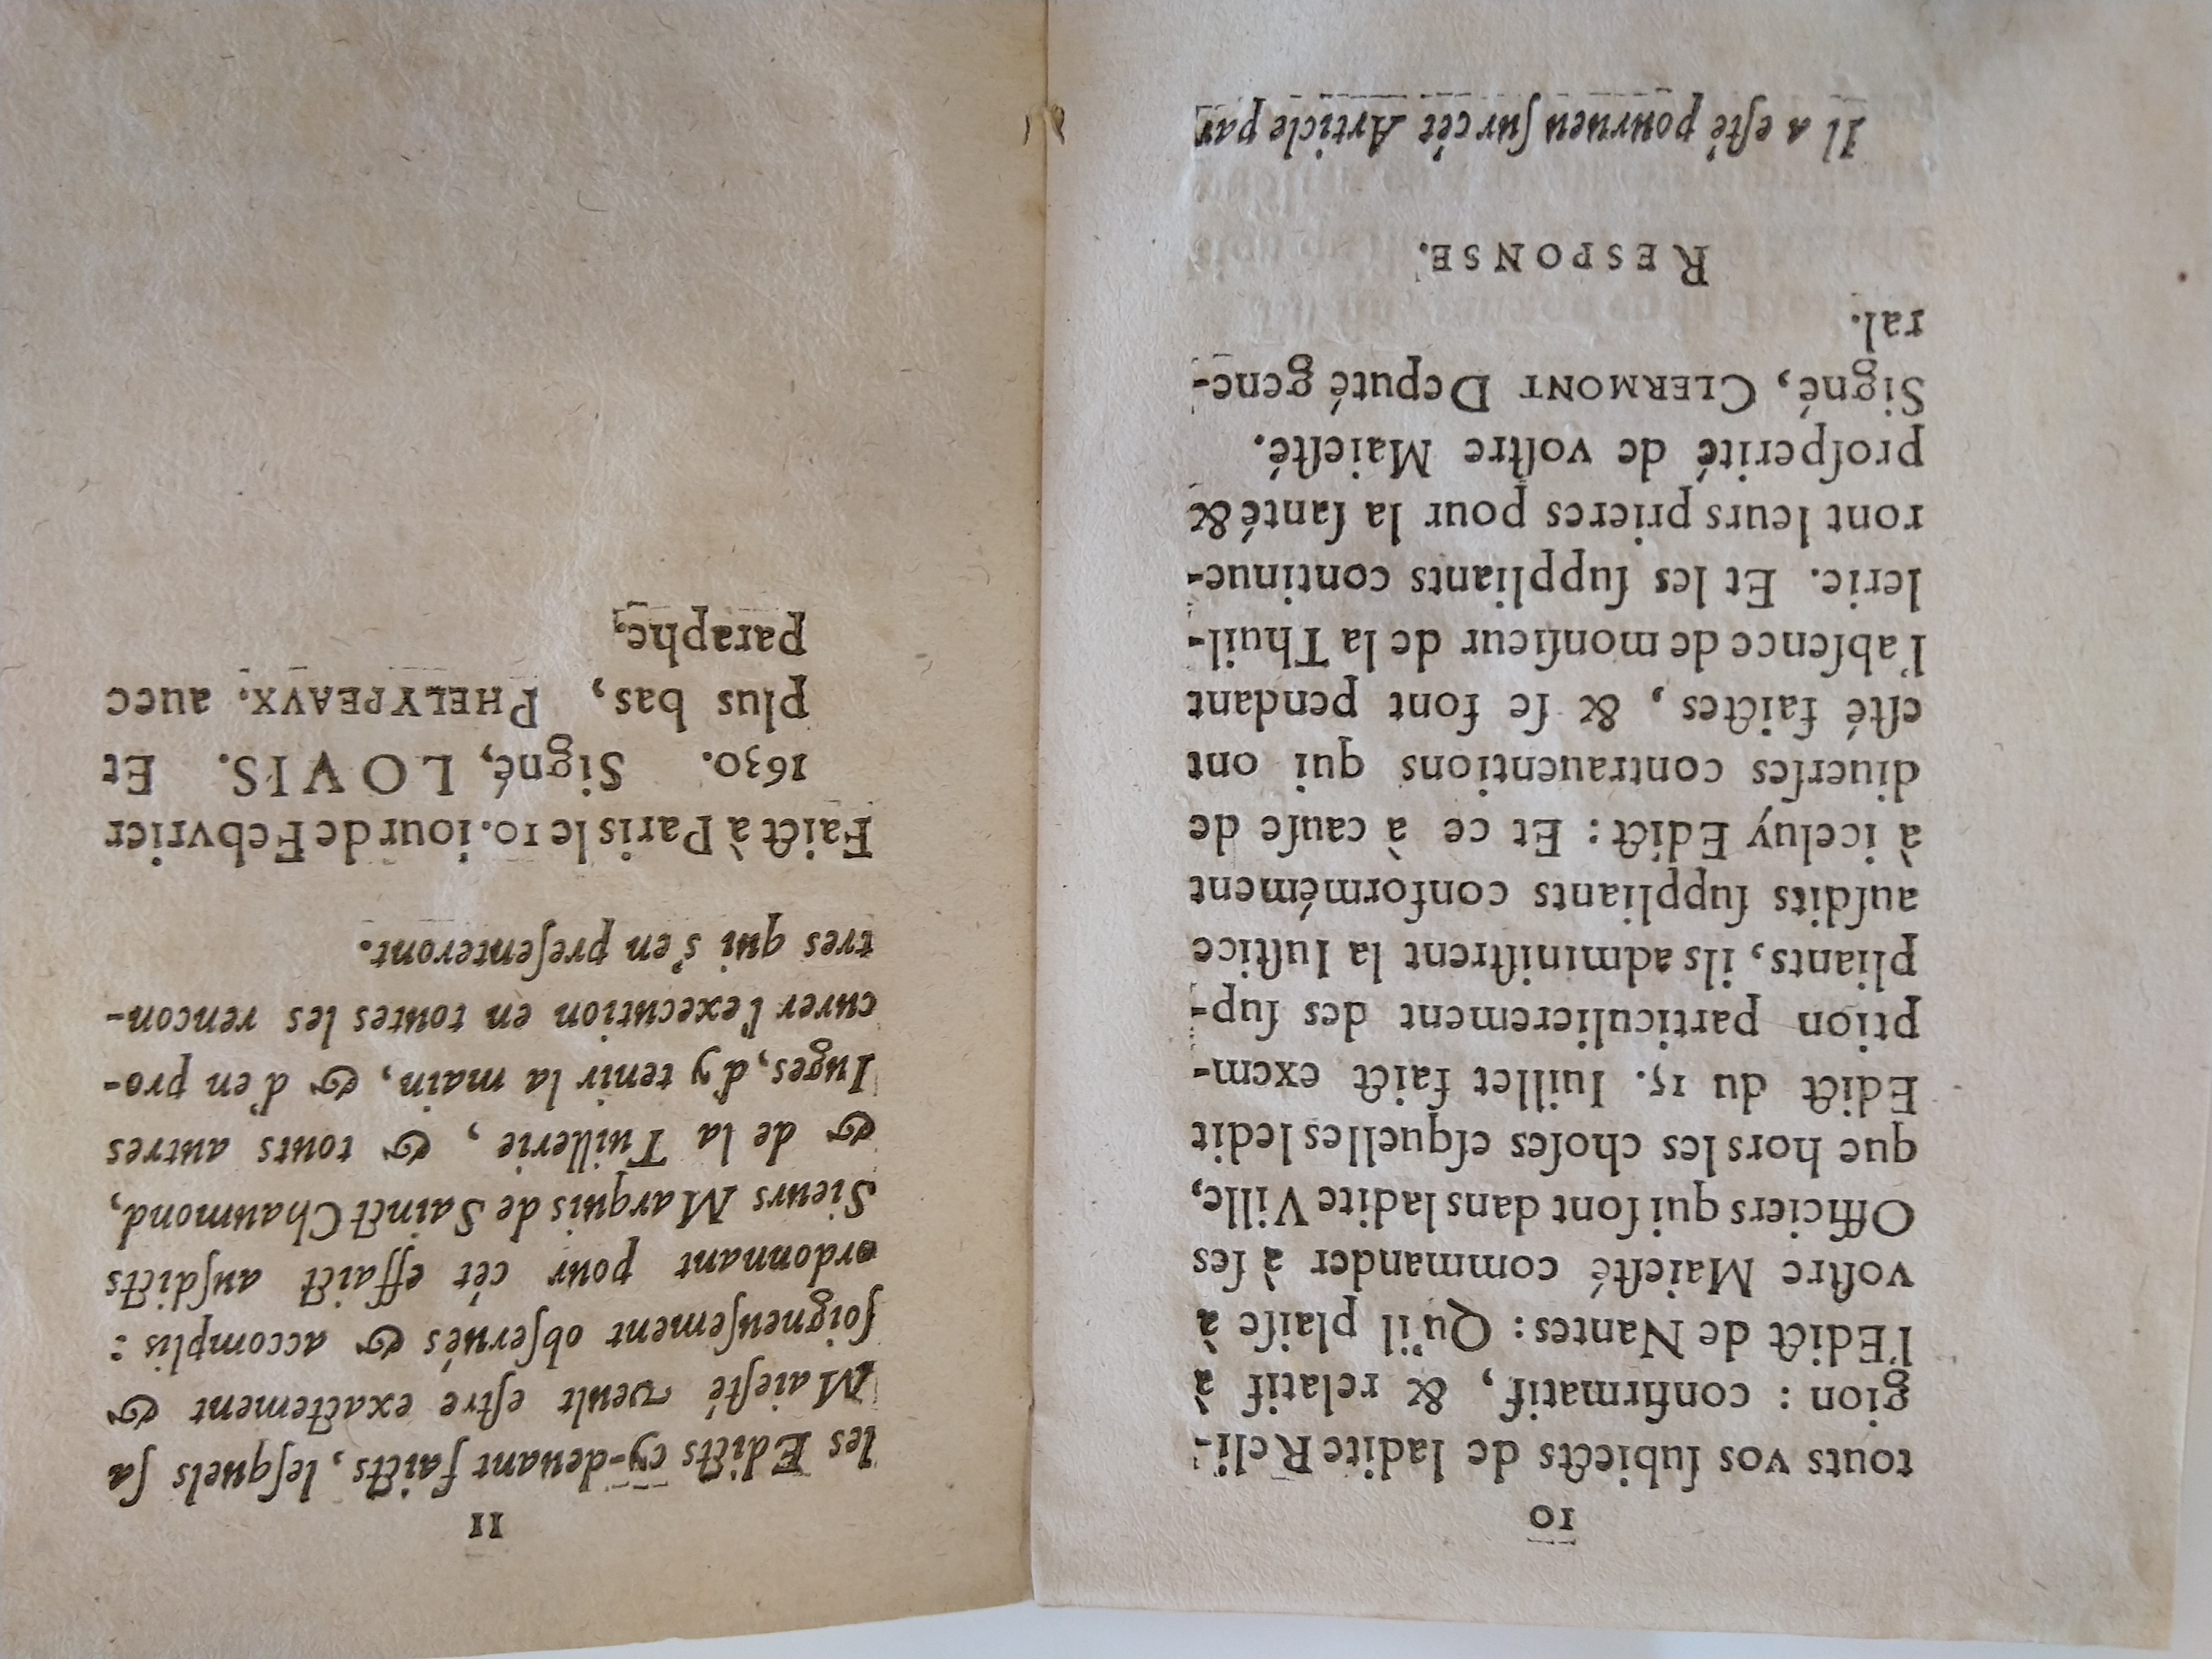 10
touts vos ſubiects de ladite Reli-
gion : confirmatif, & relatif à
l'Edict de Nantes: Qu'il plaiſe à
voſtre Maieſté commander à ſes
Officiers qui ſont dans ladite Ville,
que hors les choſes eſquelles ledit
Edict du 15. Iuillet faict exem-
ption particulierement des ſup-
pliants, ils adminiſtrent la Iuſtice
auſdits ſuppliants conformément
à iceluy Edict : Et ce à cauſe de
diuerſes contrauentions qui ont
eſté faictes , & ſe font pendant
l'abſence de monſieur de la Thuil-
lerie. Et les ſuppliants continue-
ront leurs prieres pour la ſanté &
proſperité de voſtre Maieſté.
Signé, CLERMONT Deputé gene-
ral.
RESPONSE.
Il a eſté pourueu ſur cét Article par
11
les Edicts cy-deuant faicts, leſquels ſa
Maieſté veult eſtre exactement &
ſoigneuſement obſerués & accomplis :
ordonnant pour cét effaict auſdicts
Sieurs Marquis de Sainct Chaumond,
& de la Tuillerie , & touts autres
Iuges, d'y tenir la main, & d'en pro-
curer l'execution en toutes les rencon-
tres qui s'en preſenteront.
Faict à Paris le 10. iour de Febvrier
1630. Signé, LOVIS. Et
plus bas, PHELYPEAVX. auec
paraphe.